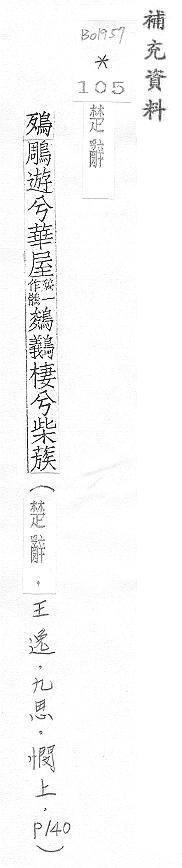 補充資料
B01957
*
105
楚辭
殦鵰遊兮華屋殦一作鴟鵕鸃棲兮柴蔟(楚辭,王逸,九思,憫上,P140)